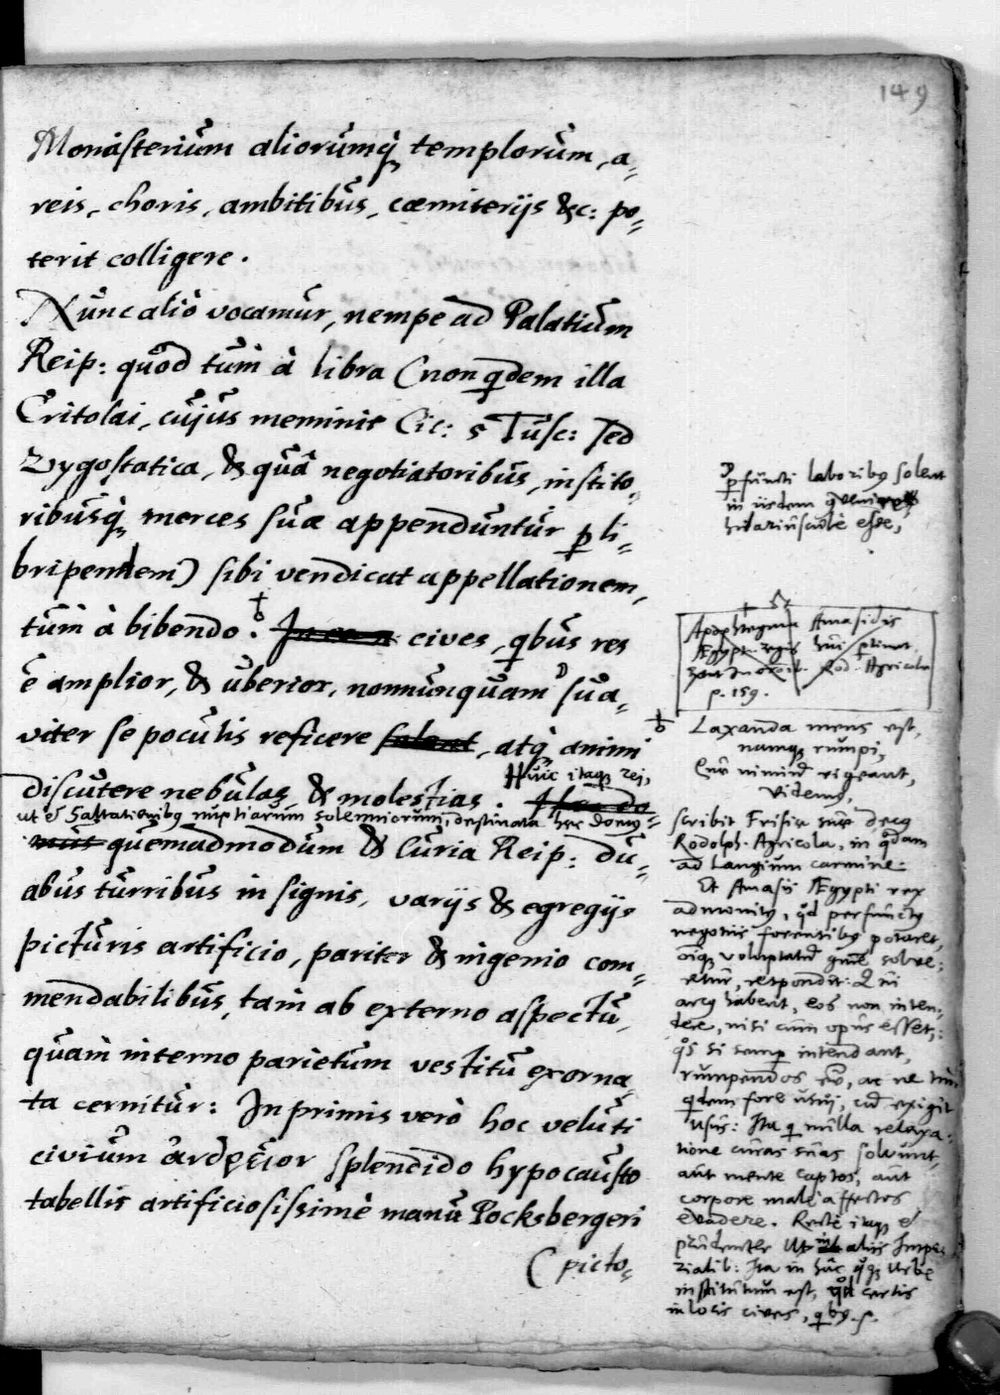 149
Monasterium aliorumq́; templorum, a-
reis, choris, ambitibus, cœmiterijs &c: po-
terit colligere.
Nunc aliò vocamur, nempe ad Palatium
Reip: quod tum à libra (non qdem illa
Critolai, cujus meminit Cic: 5 Tusc: sed
zygostatica, & quâ negotiatoribus, instito-
ribusq́; merces suæ appenduntur p li-
bripendem) sibi vendicat appellationem,
tum à bibendo. cives, qbus res
ê amplior, & uberior, nonnunquam sua-
viter se poculis reficere solent, atq́; animi
Huic itaq; rei,
discutere nebulas, & molestias.
ut et saltationibq nuptiarum solenniorum, destinata hæc domq
quemadmodum & Curia Reip: du-
abus turribus insignis, varijs & egregijs
picturis artificio, pariter & ingenio com-
mendabilibus, tam ab externo aspectu,
quam interno parietum vestitu exorna-
ta cernitur: Inprimis verò hoc veluti
civium splendido hypocausto
tabellis artificiosissimè manu Pocksbergeri
(picto-
pfuncti laboribq solent
in iisdem
hilariusculè esse,
Apophtegma Amasidis
Ægypt. regis huc ptinet.
Rod. Agricola
p. 159.
Laxanda mens est,
namq; rumpi,
Quæ nimium rigeant,
videmq,
scribit Frisiæ suæ decq
Rodolph. Agricola, in qdam
ad Langium carmine.
Et Amasis Ægypti rex
admonitq, qd perfunctq
negotiis forensibq potaret,
oiq; voluptatū gne solve-
retur, respondit: Qui
arcq haberet, eos non inten-
dere, nisi cum opus esset,
qs si semp intendant,
rumpendos eē, ac ne tum
qdem fore usui, cū exigit
usus: Ita q nulla relaxa-
tione curas suas solvunt,
aut mente captos, aut
corpore malè affectos
evadere. Rectè itaq; et
prudenter ut in aliis Impe-
rialib: Ita in hâc qq; Urbe
institutum est, qd certis
in locis cives, qbq. s.